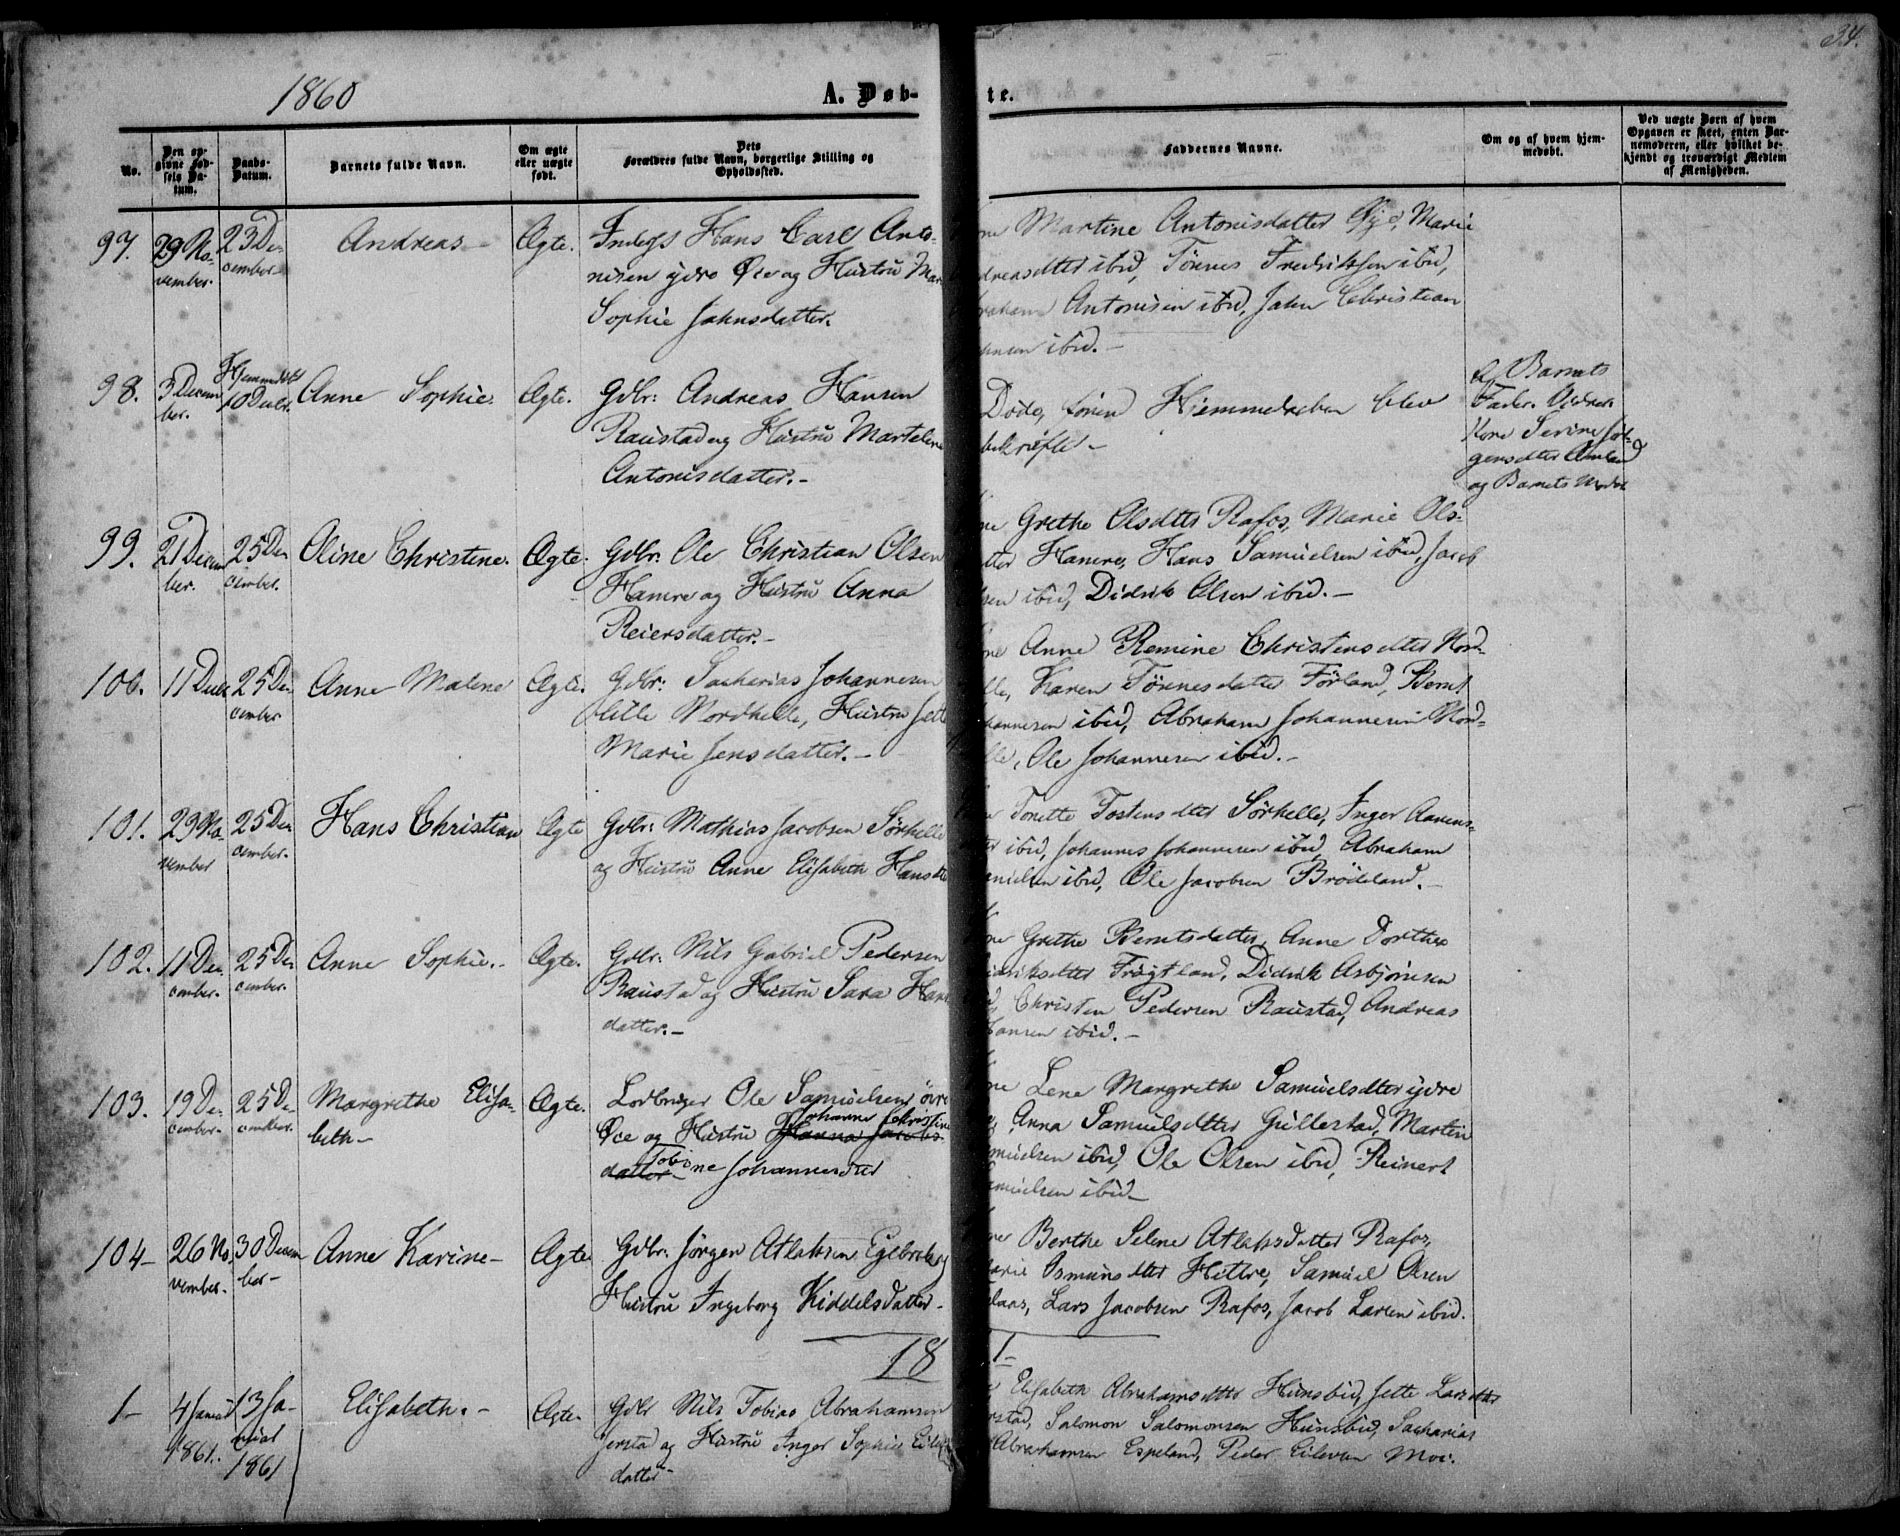 34.
1860
A. Døb-
te.
No.
Den op-
givne Fød-
sels Da-
tum.
Daabs-
Datum.
Barnets fulde Navn.
Om ægte
eller uægte
født.
Dets
Forældres fulde Navn, borgerlige Stilling og
Opholdssted.
Faddernes Navne.
Om og af hvem hjem-
medøbt.
Ved uægte Børn af hvem
Opgaven er skeet, enten Bar-
nemoderen, eller hvilket be-
kjendt og troværdigt Medlem
af Menigheden.
97.
29 No-
vember.
23 De-
cember.
Andreas
Ægte.
Hans Carl Anto-
nisen ydre Øie og Hustru Mar
Sophie Jahnsdatter.
ne Martine Antonisdatter Øye, Marie
dreasdtter ibid, Tønnes Fredriksen ibid,
raham Antonisen ibid, Jahn Christian
ansen ibid.
98.
3 Decem
ber.
Hjemmedøbt
10 Decbr.
Anne Sophie.
Ægte.
Gdbr: Andreas Hansen
Raustad og Hustru Martelene
Antonisdatter.
Døde, førend Hjemmedaaben blev
bekræftet
af Barnets
Fader.
Kone Serine Jør-
gensdtter
og Barnets Moder
99.
21 Decem
ber.
25 De-
cember.
Oline Christine.
Ægte.
Gdbr: Ole Christian Olsen
Hamre og Hustru Anna
Reiersdatter.
ne Grethe Olsdtter Rafos, Marie Ols-
tter Hamre, Hans Samuelsen ibid, Jacob
sen ibid, Didrik Olsen ibid.
100.
11 Decbr
25 De-
cember
Anne Malene
Ægte.
Gdbr: Sacharias Johannesen
lille Nordhelle, Hustru Jette
Marie Jensdatter.
ne Anne Remine Christensdtter Nord-
lle, Karen Tønnesdatter Førland, Bernt
hannesen ibid, Abraham Johannesen Nord-
lle, Ole Johannesen ibid.
101.
29 No-
vember
25 De-
cember.
Hans Christian
Ægte
Gdbr: Mathias Jacobsen Sørhelle
og Hustru Anne Elisabeth Hansdtr
Tonette Tostensdtter Sørhelle, Inger Aanens-
ibid, Johannes Johannesen ibid, Abraham
anielsen ibid, Ole Jacobsen Brødeland.
102.
11 De-
cember.
25 De-
cember.
Anne Sophie.
Ægte.
Gdbr: Nils Gabriel Pedersen
Raustad og Hustru Sara Hans
datter.
ne Grethe Berntsdatter, Anne Dorthea
idriksdtter Frøgtland, Didrik Asbjørnsen
Christen Pedersen Raustad, Andreas
Hansen ibid.
103.
19 De-
cember.
25 De-
cember.
Margrethe Elisa-
beth
Ægte.
Lodbruger Ole Samuelsen øvre
Johanne Christine
Øie og Hustru Hanna Jacobs
datter Tobine Johannesdtr
ne Lene Margrethe Samuelsdtter ydre
Anna Samuelsdtter Gullestad, Martin
muelsen ibid, Ole Olsen ibid, Reinert
amuelsen ibid
104
26 No-
vember.
30 Decem
ber
Anne Karine
Ægte
Gdbr: Jørgen Atlaksen Egelbrek og
Hustru Ingeborg Kiddelsdatter
ne Berthe Selene Atlaksdatter Rafos,
arie Osmunsdtter Hittre, Samuel Olsen
laas, Lars Jacobsen Rafos, Jacob Larsen ibid.
18
1
4 Januar
1861.
13 Ja-
nuar
1861
Elisabeth.
Ægte.
Gdbr Nils Tobias Abrahamsen
Jerstad og Hustru Inger Sophie
datter
Elisabeth Abrahamsdtter Hunsbid, Jette Larsdtter
rstad, Salomon Salomonsen Hunsbid, Sacharias
Abrahamsen Espeland, Peder Eilevsen Moi.